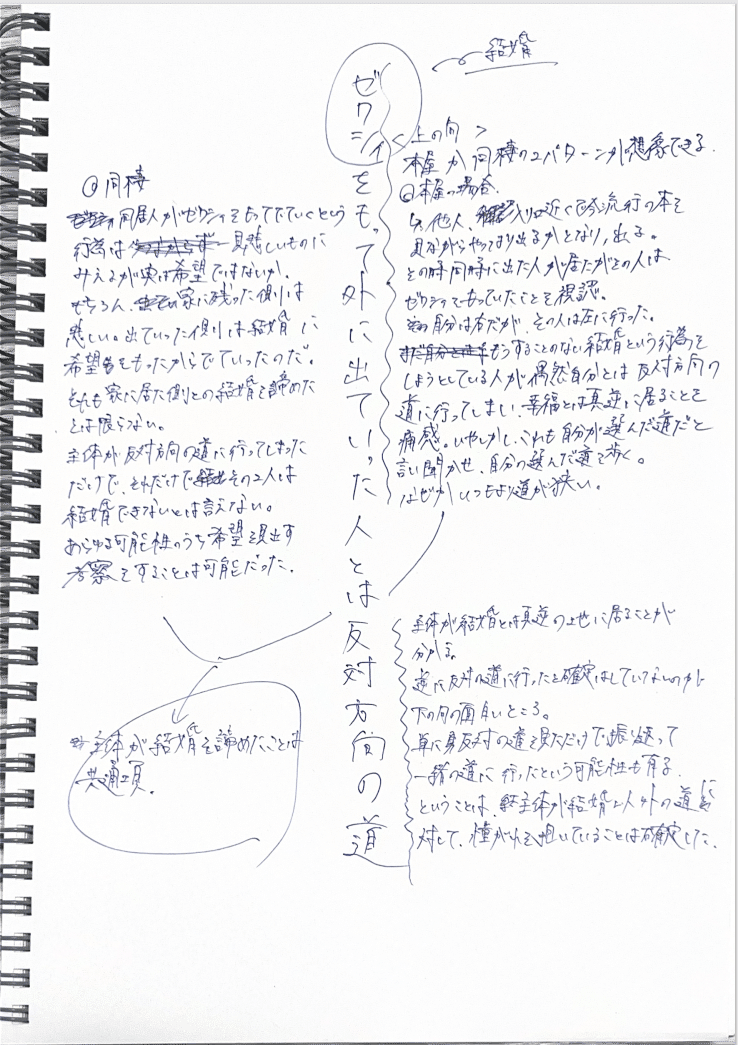 結婚
ゼクシィをもって外に出ていった人とは反対方向の道
<上の句>
本屋か同棲の2パターンが想像できる。
◎本屋の場合、
入り口近くで今流行の本を
見ながらやっぱり出るかとなり、出る。
その時同時に出た人が居たがその人は
ゼクシィをもっていたことを視認。
自分は右だが、その人は左に行った。
もうすることのない結婚という行為を
しようとしている人が偶然自分とは反対方向の
道に行ってしまい、幸福とは真逆に居ることを
痛感。いやしかし、これも自分が選んだ道だと
言い聞かせ、自分の選んだ道を歩く。
なぜかいつもより道が狭い。
主体が結婚とは真逆の土地に居ることが
分かる。
逆に反対の道に行ったと確定はしていないのが
下の句の面白いところ。
単に真反対の道を見ただけで、振り返って
一緒の道に行ったという可能性も有る。
ということは、主体が結婚以外の道に
対して、憧がれを抱いていることは確定した。
◎同棲
同居人がゼクシィをもってでていくという
行為は 見悲しいものに
みえるが実は希望ではないか。
もちろん、家に残った側は
悲しい。出ていった側は結婚に
希望をもったからでていったのだ。
それも家に居た側との結婚を諦めた
とは限らない。
主体が反対方向の道に行ってしまった
だけで、それだけでその2人は
結婚できないとは言えない。
あらゆる可能性のうち希望を見出す
考察をすることは可能だった。
主体が結婚を諦めたことは
共通項。